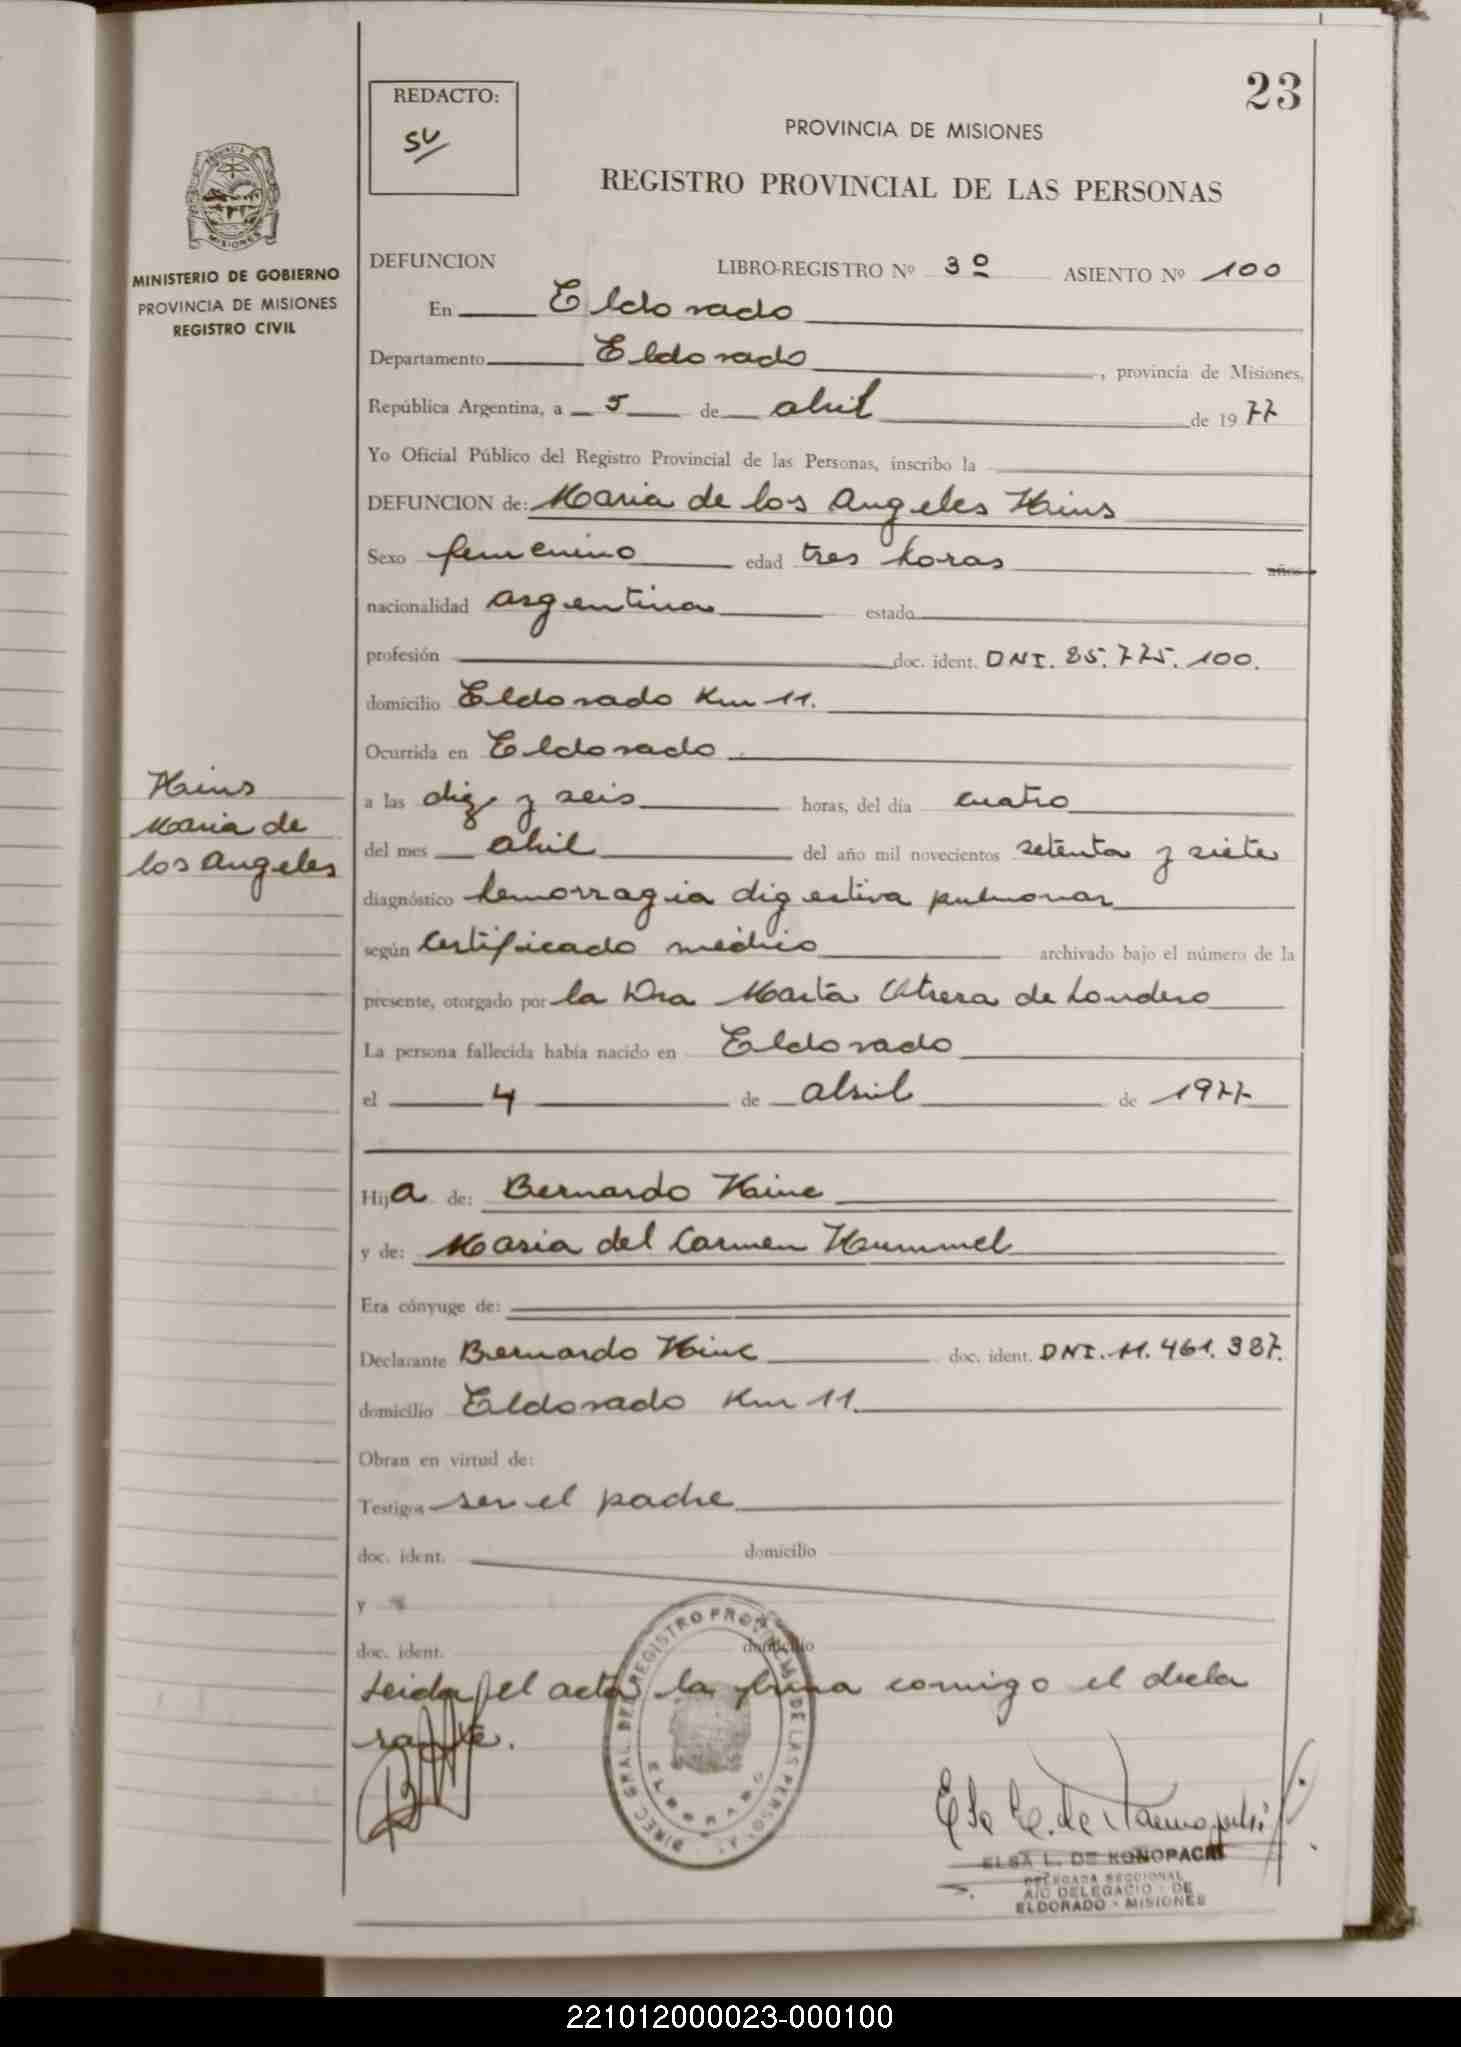 23
REDACTO:
SU
PROVINCIA DE MISIONES
REGISTRO PROVINCIAL DE LAS PERSONAS
PROVINCIA
MISIONES
MINISTERIO DE GOBIERNO
PROVINCIA DE MISIONES
REGISTRO CIVIL
DEFUNCION LIBRO-REGISTRO Nº 3º ASIENTO Nº 100
En Eldorado
Departamento Eldorado, provincia de Misiones,
República Argentina, a 5 de abril de 1977
Yo Oficial Público del Registro Provincial de las Personas, inscribo la
DEFUNCION de: Maria de los Angeles Heins
Sexo femenino edad tres horas años
nacionalidad argentina estado
profesión doc. ident. DNI. 25.775.100.
domicilio Eldorado Km 11.
Ocurrida en Eldorado
Heins
Maria de
los Angeles
a las diz y seis horas, del día cuatro
del mes abril del año mil novecientos setenta y siete
diagnóstico hemorragia digestiva pulmonar
según certificado médico archivado bajo el número de la
presente, otorgado por la Dra Marta Utrera de Londero
La persona fallecida había nacido en Eldorado
el 4 de abril de 1977
Hija de: Bernardo Heine
y de: Maria del Carmen Hummel
Era cónyuge de:
Declarante Bernardo Heine doc. ident. DNI. 11.461.387.
domicilio Eldorado Km 11.
Obran en virtud de:
Testigos ser el padre
doc. ident. domicilio
y
doc. ident. domicilio
Leida el acta la firma comigo el decla
rante.
DIREC. GRAL. DEL REGISTRO PROVINCIAL DE LAS PERSONAS
ELDORADO
ELSA L. DE KONOPACKI
DELEGADA SECCIONAL
A/C DELEGACIO DE
ELDORADO - MISIONES
221012000023-000100